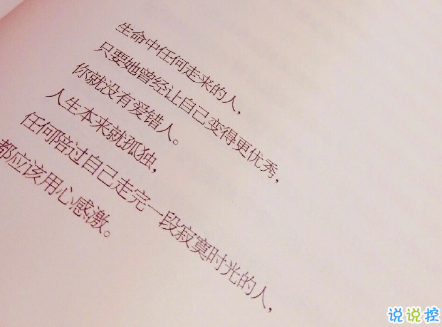 生命中任何走来的人,
只要她曾经让自己变得更优秀,
你就没有爱错人。
人生本来就孤独,
任何陪过自己走完一段寂寞时光的人,
都应该用心感激。
说说控